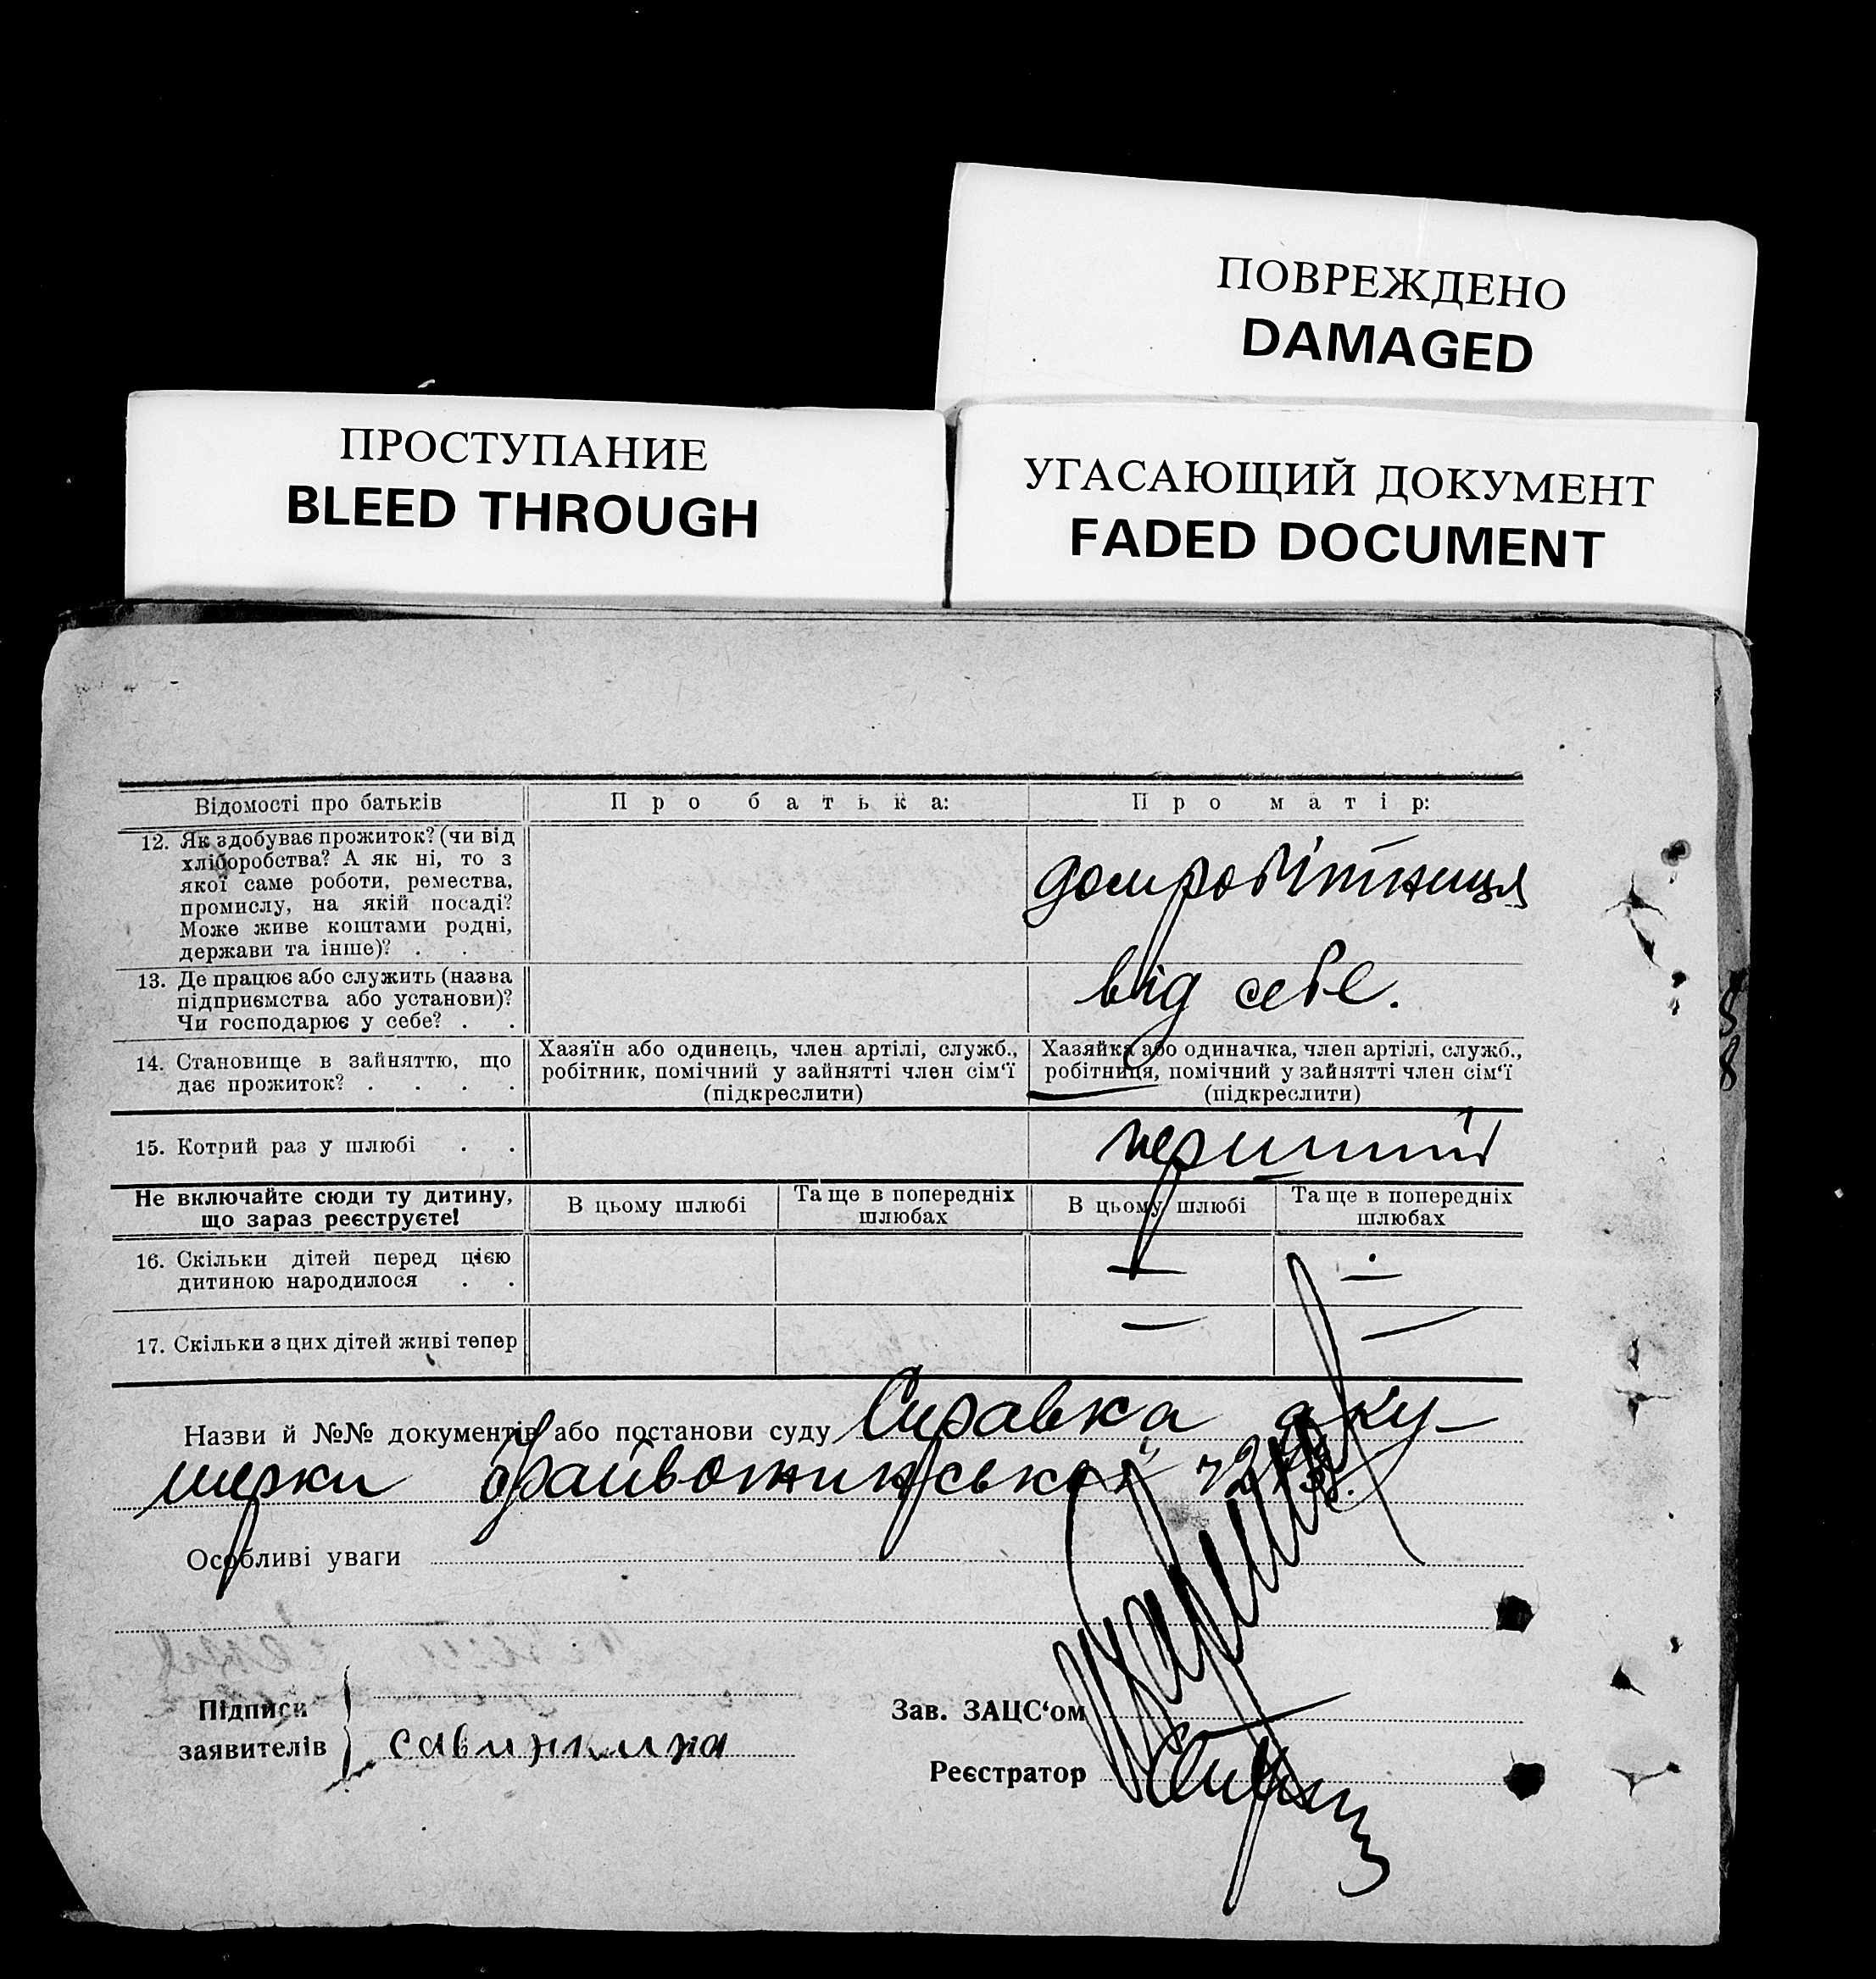 ПОВРЕЖДЕНО
DAMAGED
ПРОСТУПАНИЕ
BLEED THROUGH
УГАСАЮЩИЙ ДОКУМЕНТ
FADED DOCUMENT
Відомості про батьків
Про батька:
Про матір:
12. Як здобуває прожиток? (чи від
хліборобства? А як ні, то з
якої саме роботи, ремества,
промислу, на якій посаді?
Може живе коштами родні,
держави та інше)? . .
домробітниця
13. Де працює або служить (назва
підприємства або установи)?
Чи господарює у себе? . .
від себе.
14. Становище в зайняттю, що
дає прожиток? . . . .
Хазяїн або одинець, член артілі, служб.,
робітник, помічний у зайнятті член сім‘ї
(підкреслити)
Хазяйка або одиначка, член артілі, служб.,
робітниця, помічний у зайнятті член сім‘ї
(підкреслити)
15. Котрий раз у шлюбі . .
перший
Не включайте сюди ту дитину,
що зараз реєструєте!
В цьому шлюбі
Та ще в попередніх
шлюбах
В цьому шлюбі
Та ще в попередніх
шлюбах
16. Скільки дітей перед цією
дитиною народилося . .
— —
17. Скільки з цих дітей живі тепер
— —
Назви й №№ документів або постанови суду Справка аку-
шерки
Особливі уваги
Підписи
заявителів
Зав. ЗАЦС‘ом
Реєстратор